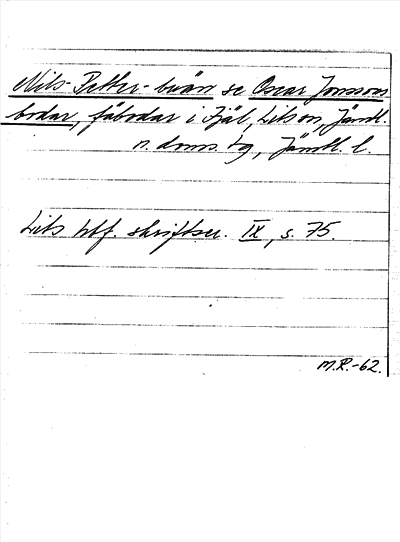 Nils-Petter-buan se Oscar Jonssons
bodar, fäbodar i Fjäl, Lits sn, Jämtl.
n. doms. tg, Jämtl. l.
Lits hbf. skriftser. IX, s. 75.
M.R.-62.